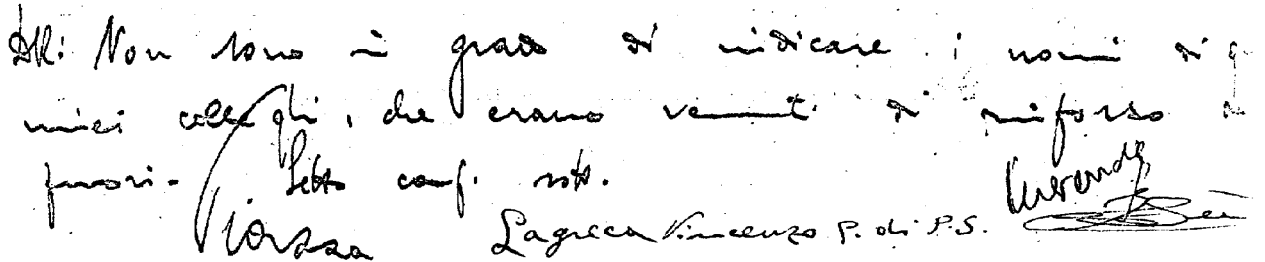 ADR: Non sono in grado di indicare i nomi di q
miei colleghi, che erano venuti di rinforzo
fuori. Letto conf. sott.
Lagreca Vincenzo G. di P.S.